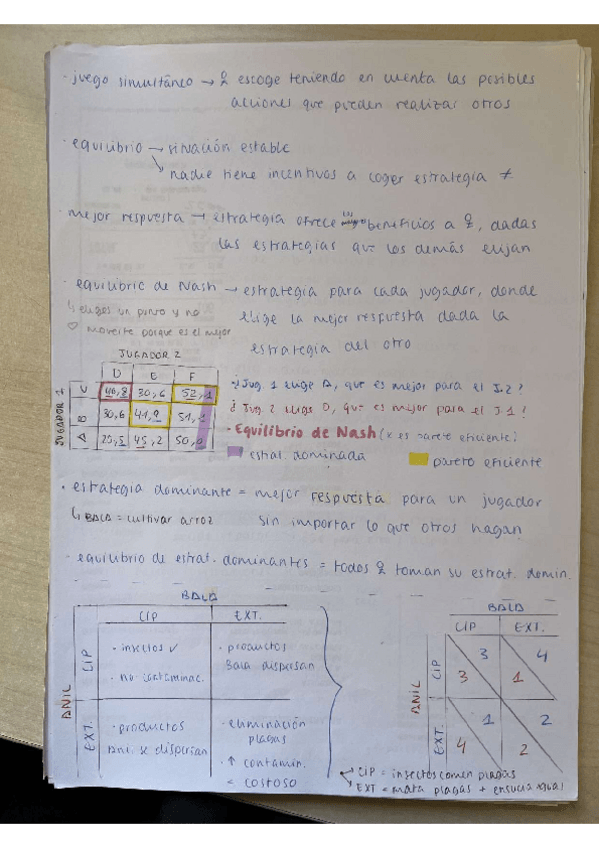 · juego simultáneo → ♀ escoge teniendo en cuenta las posibles
acciones que pueden realizar otros
· equilibrio → situación estable
↘ nadie tiene incentivos a coger estrategia ≠
· mejor respuesta → estrategia ofrece beneficios a ♀, dadas
las estrategias que los demás elijan
· equilibrio de Nash → estrategia para cada jugador, donde
↳ eliges un punto y no
elige la mejor respuesta dada la
♡ moverte porque es el mejor
estrategia del otro
JUGADOR 2
D E F
JUGADOR 1
C 40,8 30,6 52,1
B 30,6 41,9 51,
A 45,2
¿Jug. 1 elige A, que es mejor para el J.2?
¿Jug. 2 elige D, que es mejor para el J1?
· Equilibrio de Nash (x es pareto eficiente)
estrat. dominada
pareto eficiente
· estrategia dominante = mejor respuesta para un jugador
↳ BALA = cultivar arroz
sin importar lo que otros hagan
· equilibrio de estrat. dominantes = todos ♀ toman su estrat. domin.
BALA
CIP EXT.
ANIL
CIP
· insectos ✓
· no contaminac.
· productos
Bala dispersan
EXT.
· productos
Ani. se dispersan
· eliminación
plagas
· ↑ contamin.
< costoso
BALA
CIP EXT.
ANIL
CIP
3 4
3 1
EXT.
1 2
4 2
→ CIP = insectos comen plagas
→ EXT = mata plagas + ensucia agua